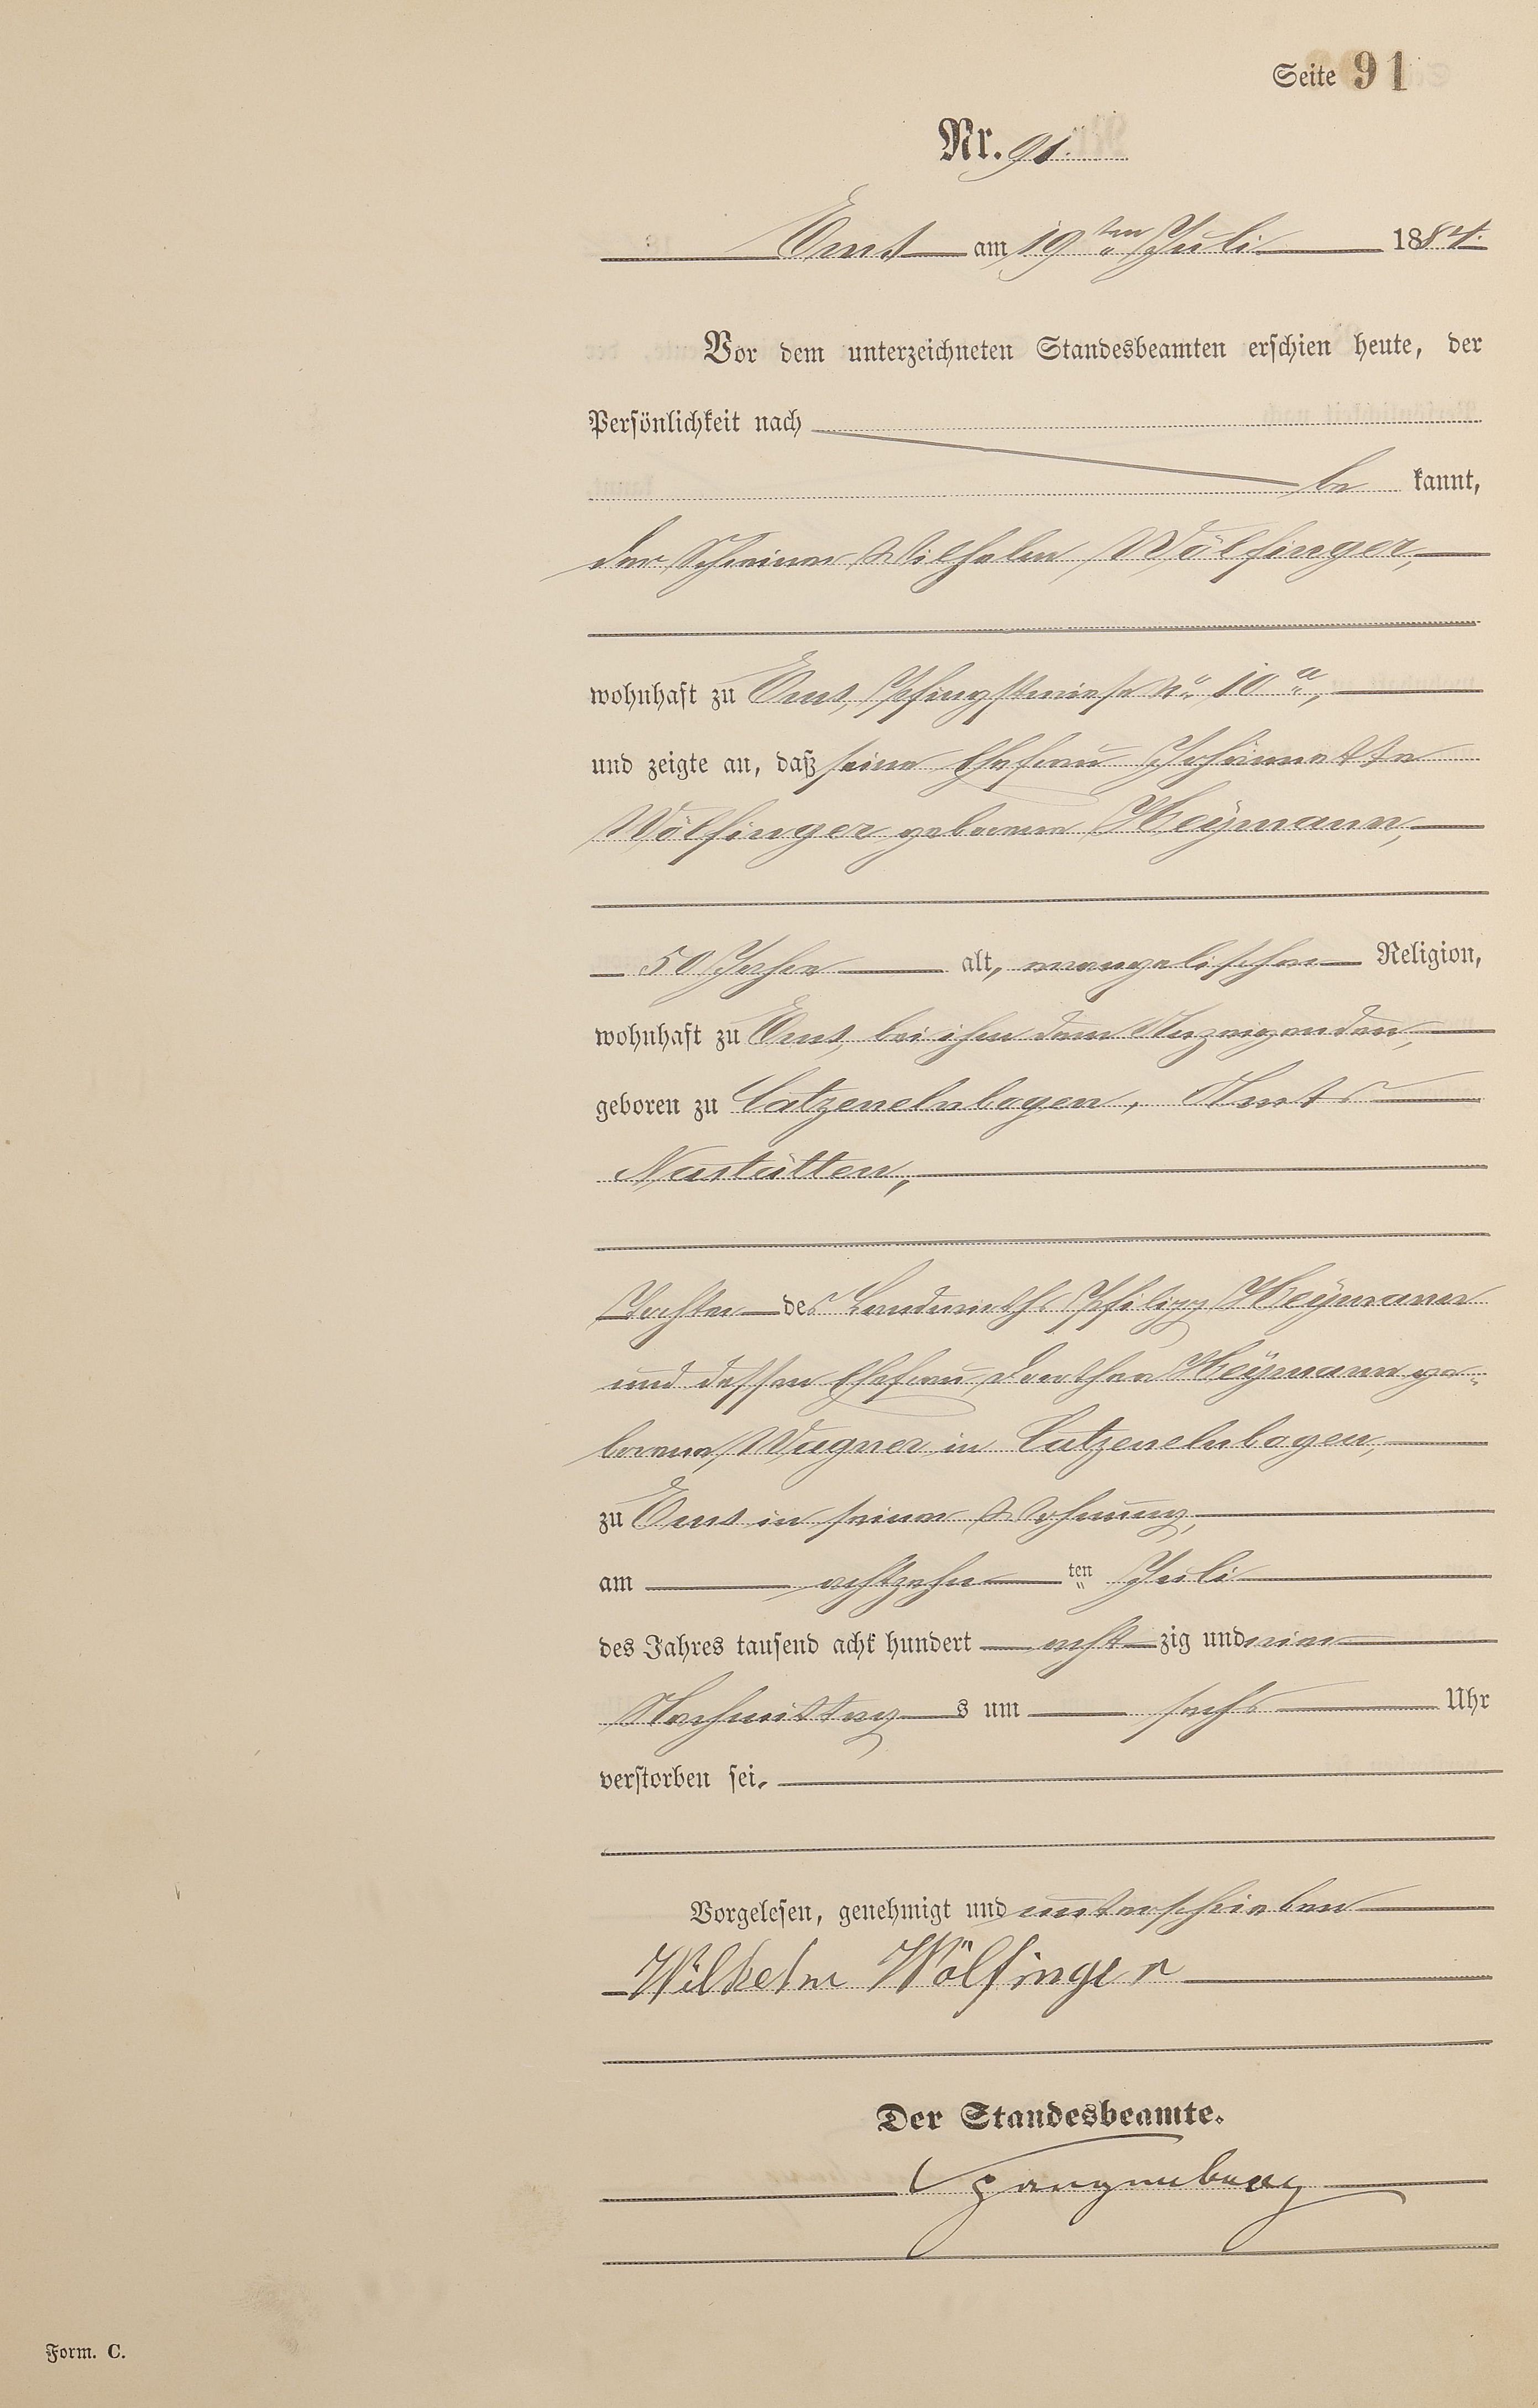 Seite 91
Nr. 91.
Ems am 19ten Juli 1884.
Vor dem unterzeichneten Standesbeamten erschien heute, der
Persönlichkeit nach
be kannt,
der Schreiner Wilhelm Wölfinger,
wohnhaft zu Ems, Pfingstwiese No 10a,
und zeigte an, daß seine Ehefrau Johannette
Wölfinger geborene Heymann,
50 Jahre alt, evangelischer Religion,
wohnhaft zu Ems, bei ihm dem Anzeigenden,
geboren zu Catzenelnbogen, Amts
Nastätten,
Tochter des Landwirths Philipp Heymann
und dessen Ehefrau Dorothea Heymann ge-
borene Wagner in Catzenelnbogen,
zu Ems in seiner Wohnung,
am achtzehn ten Juli
des Jahres tausend acht hundert acht zig und vier
Nachmittag s um sechs Uhr
verstorben sei.
Vorgelesen, genehmigt und unterschrieben
Wilhelm Wölfinger
Der Standesbeamte.
Form. C.